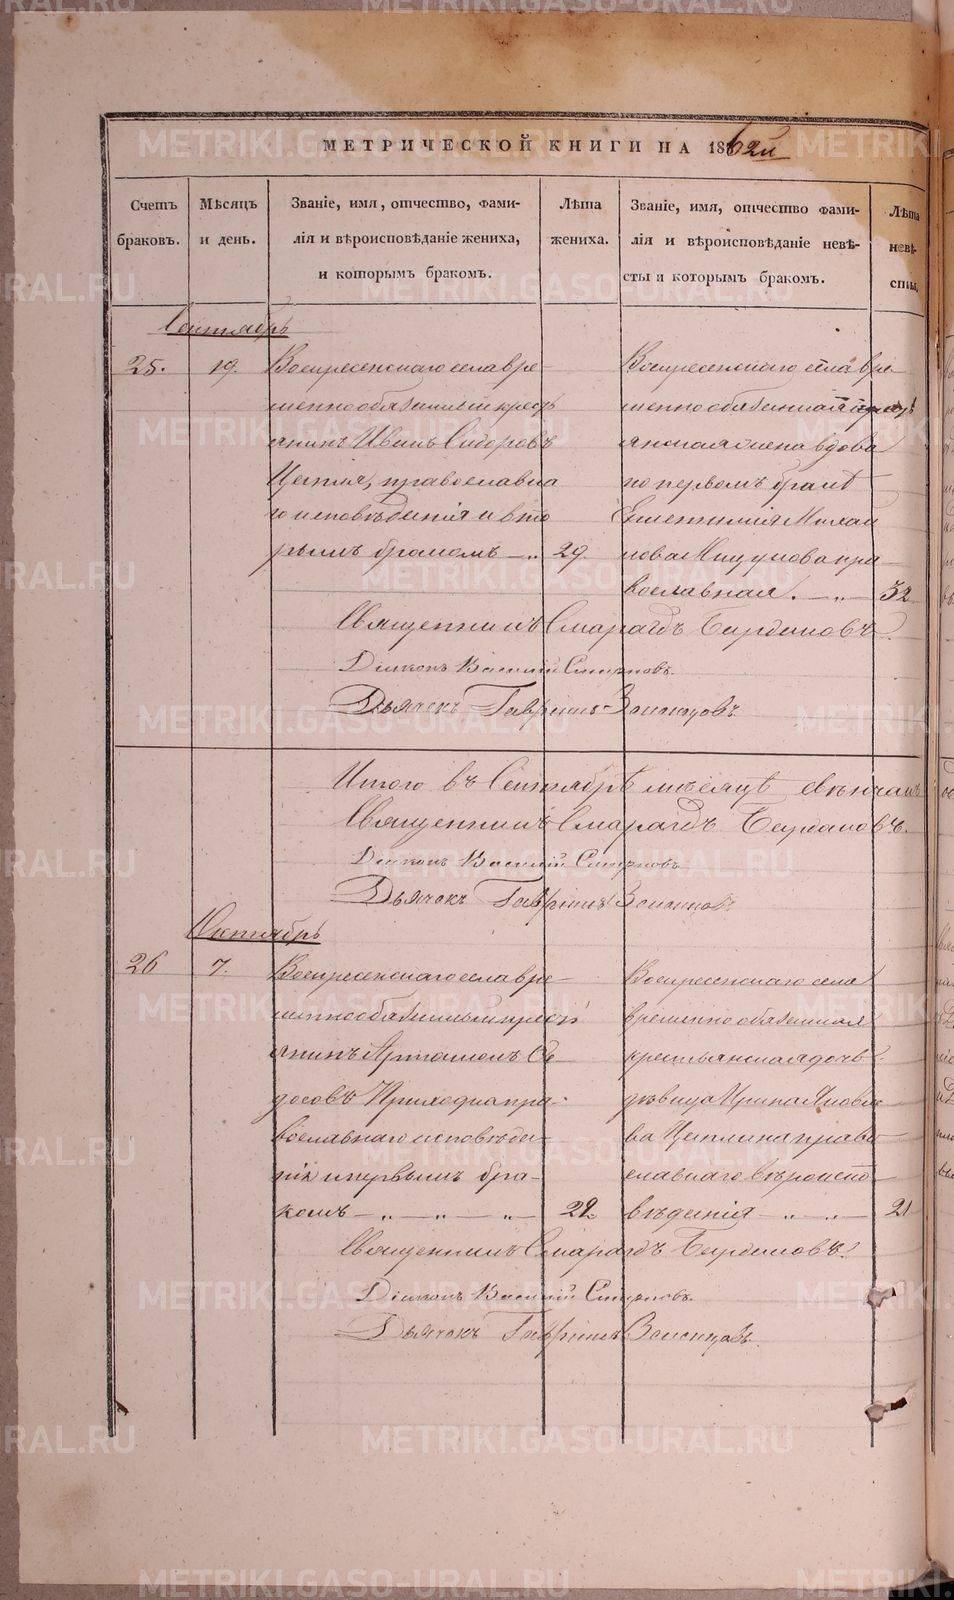 МЕТРИЧЕСКОЙ КНИГИ НА 1862й
Счетъ браковъ.
Мѣсяцъ и день.
Званіе, имя, отчество, фами-
лія и вѣроисповѣданіе жениха,
и которымъ бракомъ.
Лѣта жениха.
Званіе, имя, отчество фами-
лія и вѣроисповѣданіе невѣ-
сты и которымъ бракомъ.
Лѣта невѣ-
сты.
Сентябрь
25.
19.
Воскресенскаго села вре-
меннообязанный кресть
янинъ Иванъ Сидоровъ
православна
го исповѣданія и вто
рымъ бракомъ
29.
Воскресенскаго села вре
меннообязанная кресть
янская жена вдова
по первомъ бракѣ
Михай
лова пра
вославная.
32
Священникъ Смарагдъ
Діаконъ Василій Смирновъ.
Дьячекъ Гавріилъ
Итого въ Сентябрѣ мѣсяцѣ
Священникъ Смарагдъ
Діаконъ Василій Смирновъ
Дьячокъ Гавріилъ
Октябрь
26
7.
Воскресенскаго села вре-
меннообязанный крест
янинъ Артамонъ Ѳе-
досовъ пра-
вославнаго исповѣда-
нія и первымъ бра-
комъ
22.
Воскресенскаго села
временнообязанная
крестьянская дочь
дѣвица Ирина Яковле
ва право
славнаго вѣроиспо
вѣданія
21
Священникъ Смарагдъ
Діаконъ Василій Смирновъ.
Дьячокъ Гавріилъ
METRIKI.GASO-URAL.RU